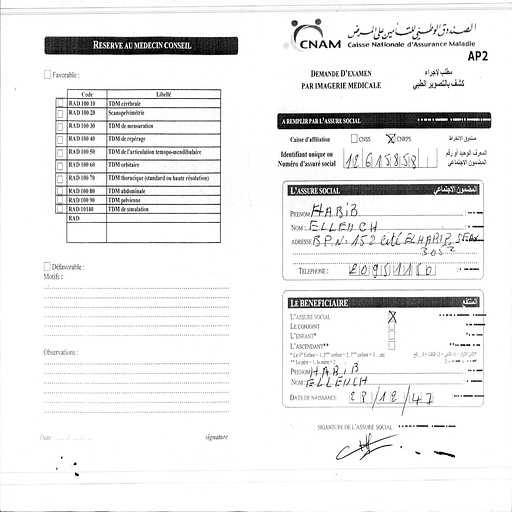 RESERVE AU MEDECIN CONSEIL
Favorable :
Code Libellé
RAD 100 10 TDM cérébrale
RAD 100 20 Scanopelvimétrie
RAD 100 30 TDM de mensuration
RAD 100 40 TDM de repérage
RAD 100 50 TDM de l'articulation temopo-mendibulaire
RAD 100 60 TDM orbitaire
RAD 100 70 TDM thoracique (standard ou haute résolution)
RAD 100 80 TDM abdominale
RAD 100 90 TDM pelvienne
RAD 10140 TDM de simulation
RAD
Défavorable :
Motifs :
Observations :
Date signature
الصندوق الوطني للتأمين على المرض
CNAM Caisse Nationale d'Assurance Maladie
AP2
DEMANDE D'EXAMEN
PAR IMAGERIE MEDICALE
مطلب لإجراء
كشف بالتصوير الطبي
A REMPLIR PAR L'ASSURE SOCIAL
Caisse d'affiliation CNSS CNRPS صندوق الانخراط
Identifiant unique ou
Numéro d'assuré social 12615858
المعرف الوحيد أو رقم
المضمون الاجتماعي
L'ASSURE SOCIAL المضمون الاجتماعي
PRENOM HABIB
NOM : ELLEUCH
ADRESSE B.P. N° 152 Cité ELHABIB SFAX
3052
TELEPHONE : 20951160
LE BENEFICIAIRE المنتفع
L'ASSURE SOCIAL
LE CONJOINT
L'ENFANT*
L'ASCENDANT**
PRENOM HABIB
NOM : ELLEUCH
DATE DE NAISSANCE 28/12/47
SIGANTURE DE L'ASSURE SOCIAL